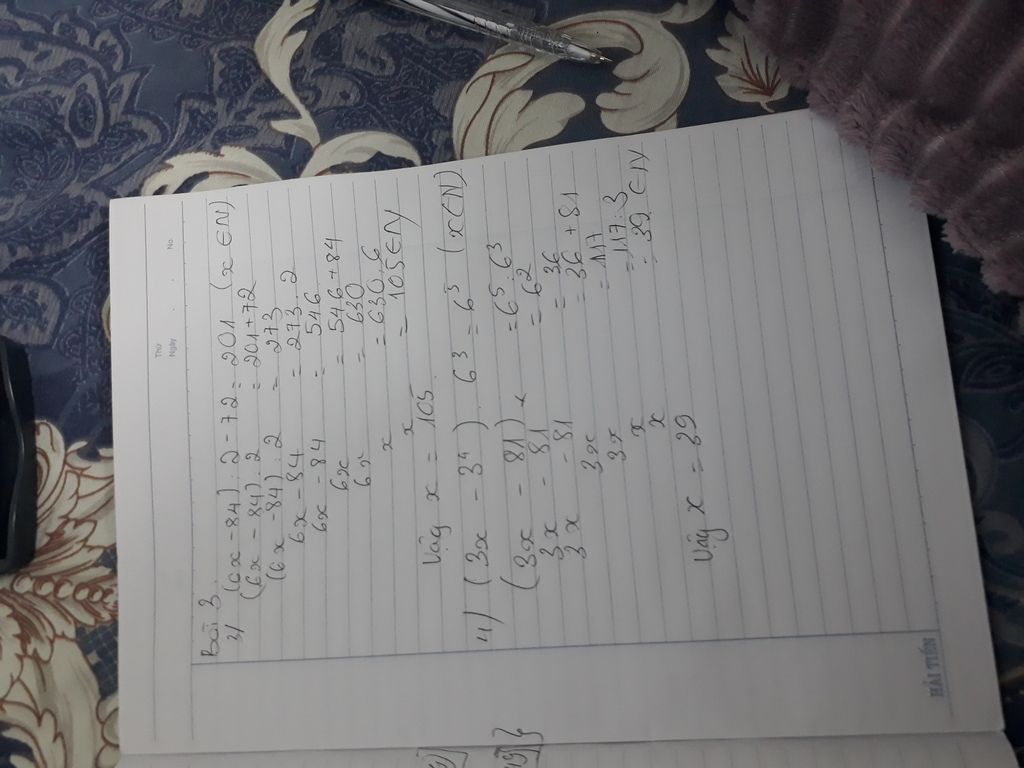 Thứ
Ngày
No.
Bài 3
3) (6x - 84) : 2 - 72 = 201 (x ∈ N)
(6x - 84) : 2 = 201 + 72
(6x - 84) : 2 = 273
6x - 84 = 273 . 2
6x - 84 = 546
6x = 546 + 84
6x = 630
x = 630 : 6
x = 105 ∈ N
Vậy x = 105
4) (3x - 3⁴) . 6³ = 6⁵ (x ∈ N)
(3x - 81) = 6⁵ : 6³
3x - 81 = 6²
3x - 81 = 36
3x = 36 + 81
3x = 117
x = 117 : 3
x = 39 ∈ N
Vậy x = 39
HẢI TIẾN